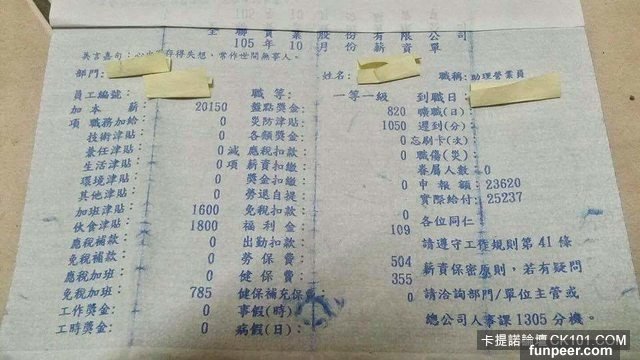 全聯實業股份有限公司
105年10月份薪資單
美言嘉句:心出 存得失想,常作世間無事人。
部門: 姓名: 職稱:助理營業員
員工編號: 職等: 一等一級 到職日:
加 本薪: 20150 盤點獎金: 820 曠職(日): 0
項 職務加給: 0 災防津貼: 1050 遲到(分): 0
技術津貼: 0 各類獎金: 0 忘刷卡(次): 0
兼任津貼: 0 減 應稅扣款: 0 職傷(災): 0
生活津貼: 0 項 薪資扣繳: 0 眷屬人數: 0
環境津貼: 0 獎金扣繳: 0 申報額: 23620
其他津貼: 0 勞退自提: 0 實際給付: 25237
加班津貼: 1600 免稅扣款: 0 各位同仁:
伙食津貼: 1800 福利金: 109
應稅補款: 0 出勤扣款: 0 請遵守工作規則第41條
免稅補款: 0 勞保費: 504 薪資保密原則,若有疑問
應稅加班: 0 健保費: 355
免稅加班: 785 健保補充保費: 0 請洽詢部門/單位主管或
工作獎金: 0 事假(時) 0
工時獎金: 0 病假(日): 0 總公司人事課1305分機。
卡提諾論壇CK101.COM
funpeer.com